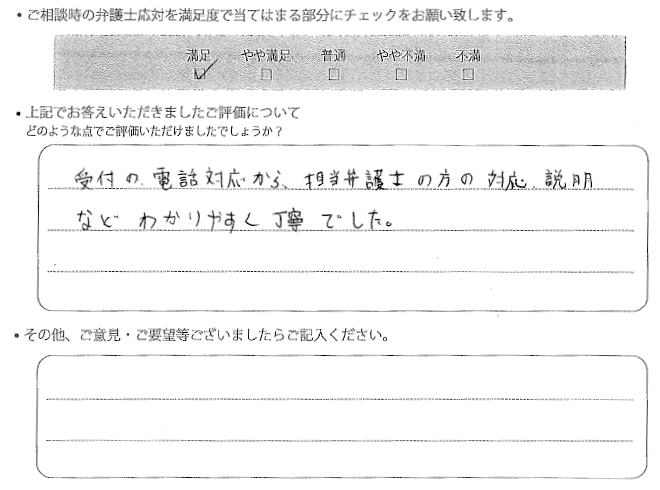 ・ご相談時の弁護士応対を満足度で当てはまる部分にチェックをお願い致します。
満足 やや満足 普通 やや不満 不満
☑ □ □ □ □
・上記でお答えいただきましたご評価について
どのような点でご評価いただけましたでしょうか？
受付の、電話対応から、担当弁護士の方の対応、説明
など わかりやすく丁寧でした。
・その他、ご意見・ご要望等ございましたらご記入ください。